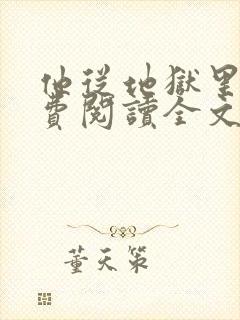 他從地獄里
費閱讀全文
董天策